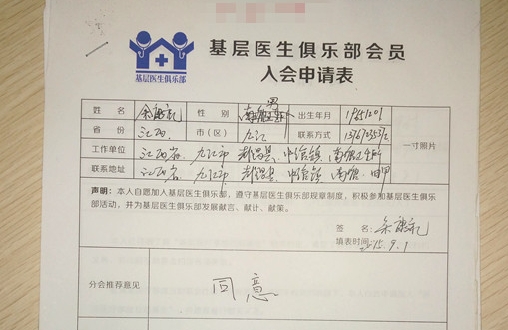 基层医生俱乐部
基层医生俱乐部会员
入会申请表
姓 名 性 别 男 出生年月
省 份 江西 市（区） 九江 联系方式
一寸照片
工作单位 江西省 九江市 都昌县
联系地址 江西省 九江市 都昌县
声明：本人自愿加入基层医生俱乐部，遵守基层医生俱乐部规章制度，积极参加基层医生俱乐部
活动，并为基层医生俱乐部发展献言、献计、献策。
签 名：
填表时间：2015.9.1
分会推荐意见 同意